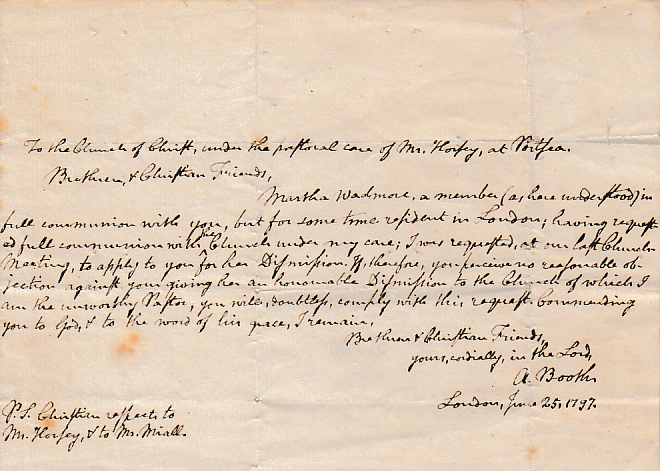 To the Church of Christ, under the pastoral care of Mr. Horsey, at Portsea.
Brethren, & Christian Friends,
Martha Wadmore, a member (as here understood) in
full communion with you, but for some time resident in London; having request-
ed full communion with the Church under my care; I was requested, at our last Church
Meeting, to apply to you for her Dismission. If, therefore, you perceive no reasonable ob-
jection against your giving her an honourable Dismission to the Church of which I
am the unworthy Pastor, you will, doubtless, comply with this request. Commending
you to God, & to the word of his grace, I remain,
Brethren & Christian Friends,
yours, cordially, in the Lord,
A. Booth
London, June 25, 1797.
P.S. Christian respects to
Mr. Horsey, & to Mr. Miall.